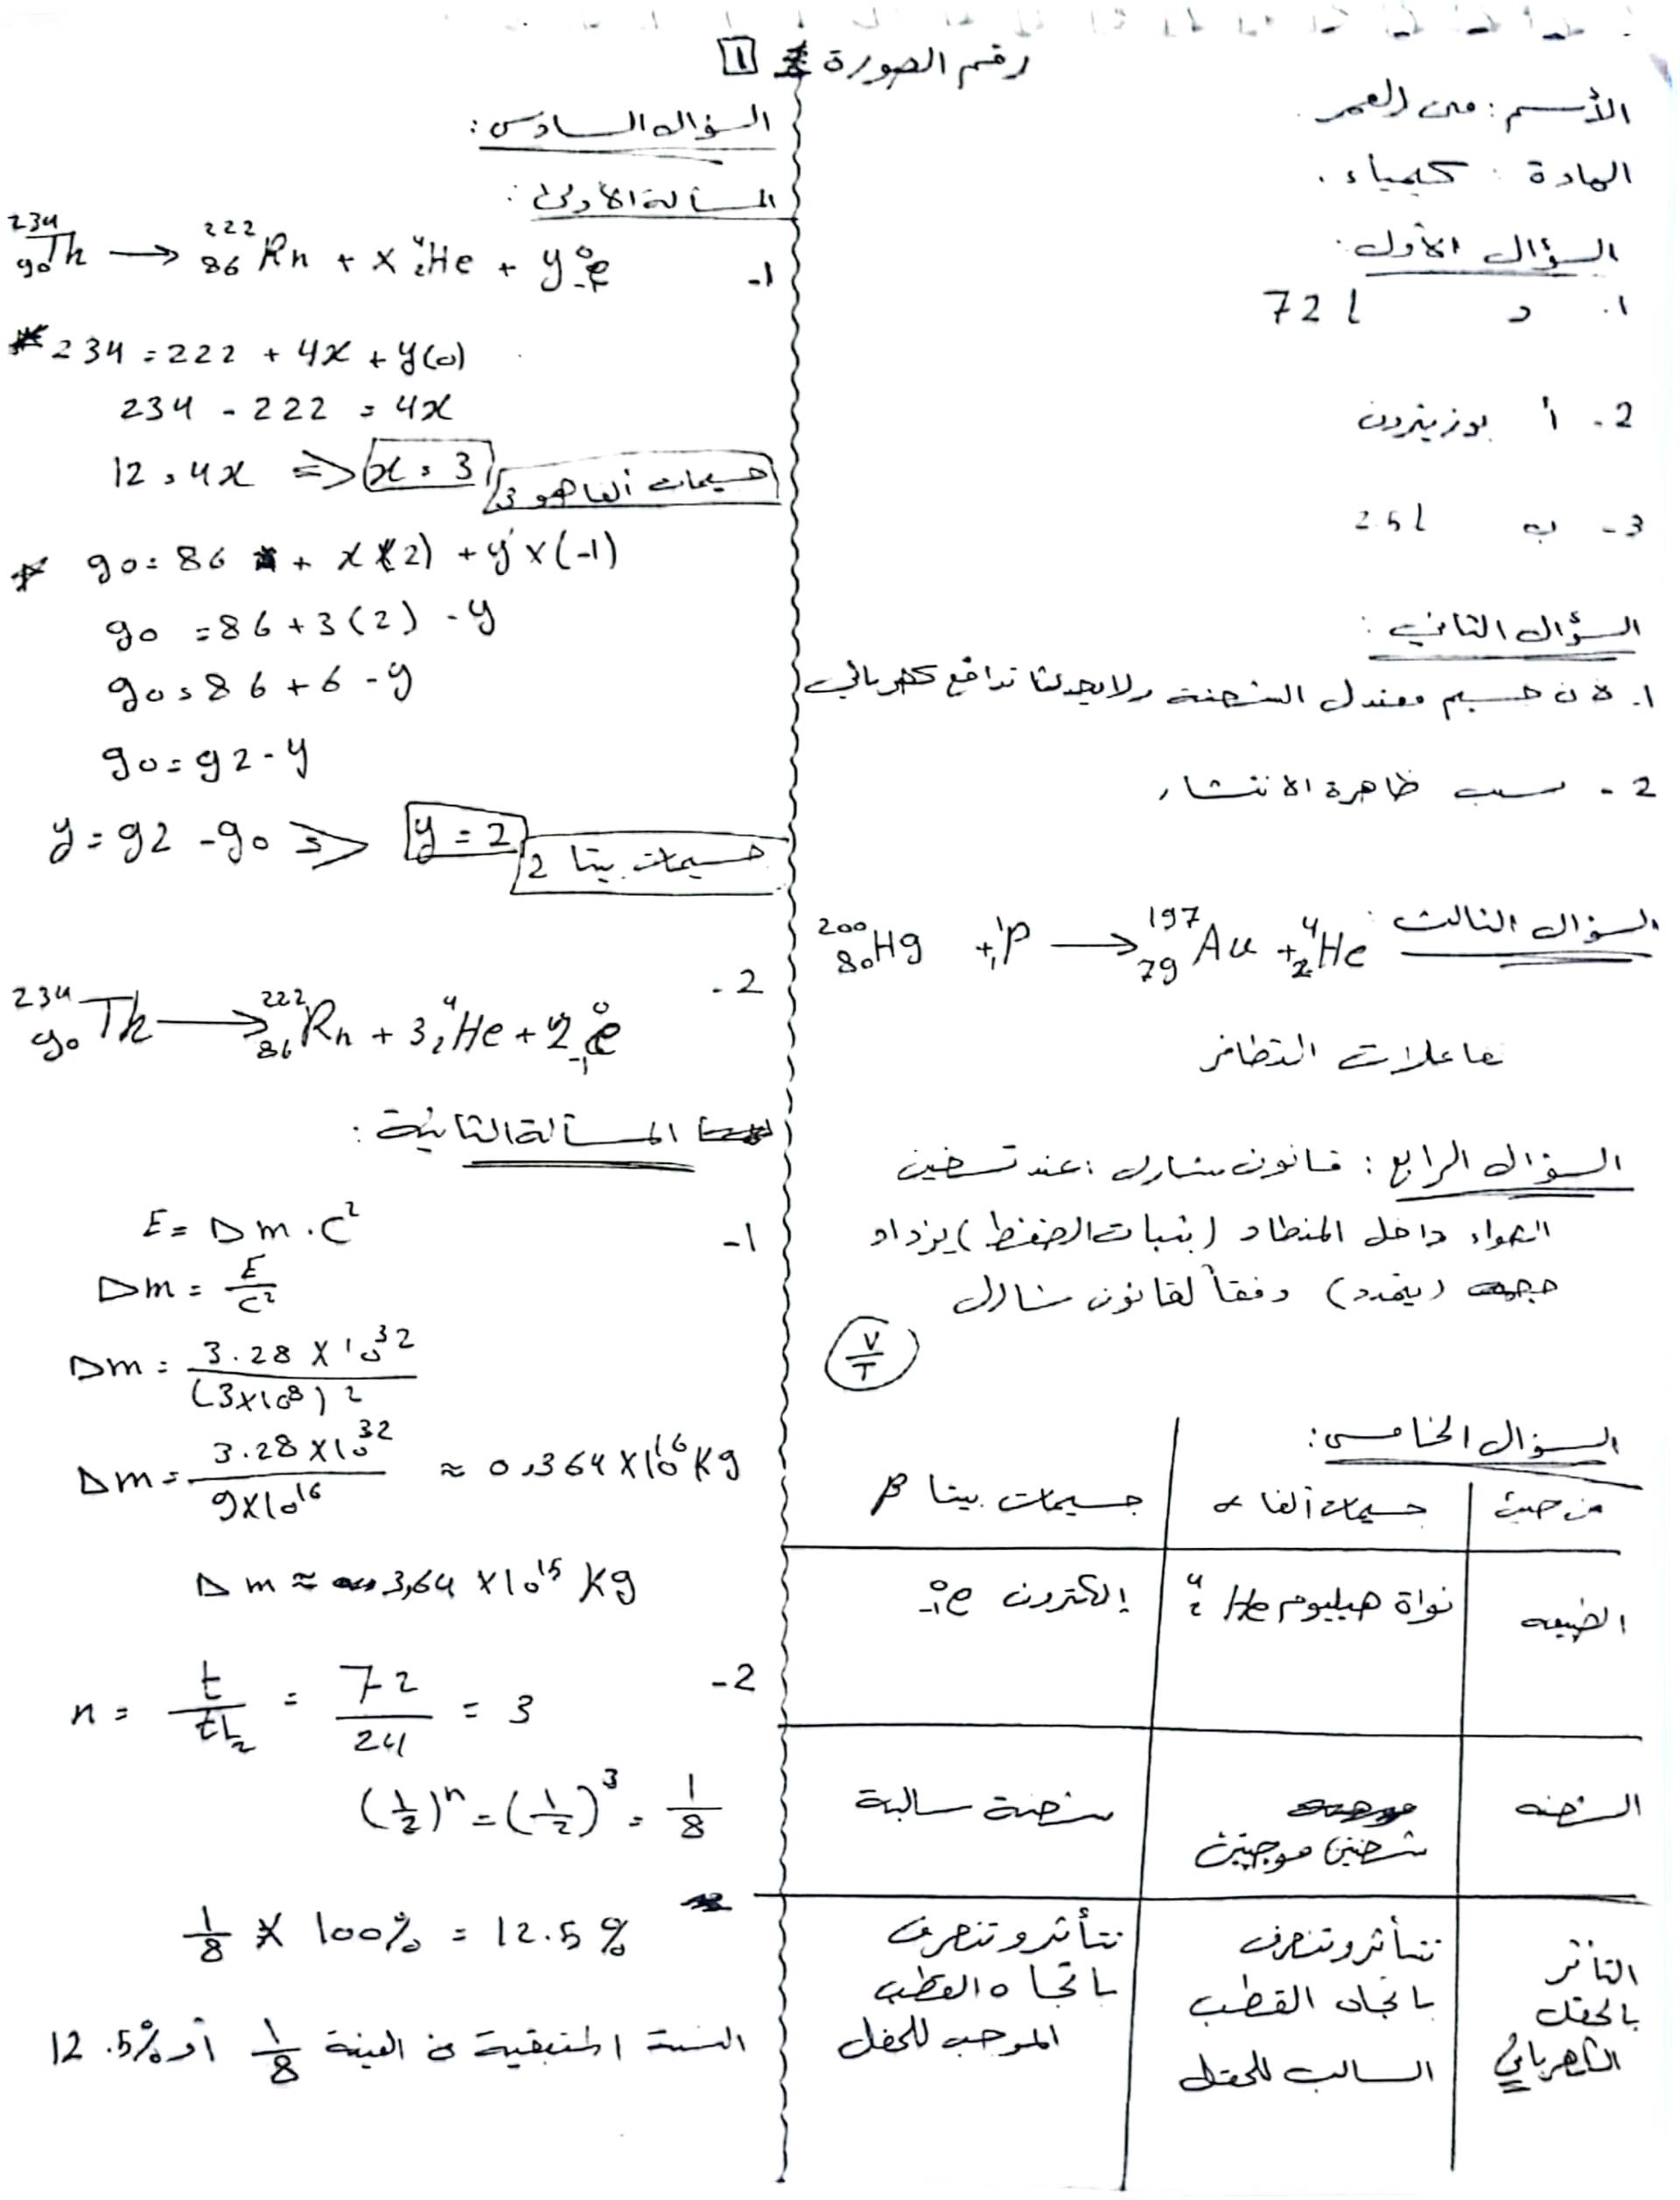 رقم الصورة 1
الأسم: منى العمر.
المادة: كيمياء.
السؤال الأول:
1. د 72 l
2- أ بوزيترون
3- ب 2.5 l
السؤال الثاني:
1. لأن جسيم معتدل الشحنة ولا يحدث تدافع كهربائي
2- بسبب ظاهرة الانتشار
السؤال الثالث: ²⁰⁰₈₀Hg + ¹₁P → ¹⁹⁷₇₉Au + ⁴₂He
تفاعلات التطافر
السؤال الرابع: قانون شارل: عند تسخين
الهواء داخل المنطاد (بثبات الضغط) يزداد
حجمه (يتمدد) وفقاً لقانون شارل
V/T
السؤال الخامس:
من حيث | جسيمات ألفا α | جسيمات بيتا β
الطبيعه | نواة هيليوم ⁴₂He | إلكترون ⁰₋₁e
الشحنه | شحنتين موجبتين | شحنة سالبة
التأثر بالحقل الكهربائي | تتأثر وتنحرف باتجاه القطب السالب للحقل | تتأثر وتنحرف باتجاه القطب الموجب للحقل
السؤال السادس:
المسألة الأولى:
1- ²³⁴₉₀Th → ²²²₈₆Rn + x ⁴₂He + y ⁰₋₁e
* 234 = 222 + 4x + y(0)
234 - 222 = 4x
12 = 4x ⇒ x = 3 جسيمات ألفا هو 3
* 90 = 86 + x(2) + y×(-1)
90 = 86 + 3(2) - y
90 = 86 + 6 - y
90 = 92 - y
y = 92 - 90 ⇒ y = 2 جسيمات بيتا 2
2-
²³⁴₉₀Th → ²²²₈₆Rn + 3 ⁴₂He + 2 ⁰₋₁e
المسألة الثانية:
1- E = Δm . C²
Δm = E/C²
Δm = 3.28 × 10³² / (3×10⁸)²
Δm = 3.28 × 10³² / 9×10¹⁶ ≈ 0,364 × 10¹⁶ Kg
Δm ≈ 3,64 × 10¹⁵ Kg
2- n = t / t½ = 72/24 = 3
(1/2)ⁿ = (1/2)³ = 1/8
1/8 × 100% = 12.5%
النسبة المتبقية من العينة 1/8 أو 12.5%